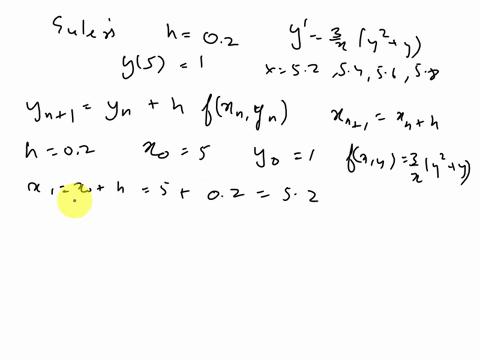 Euler's h = 0.2 y' = 3/x (y²+y)
y(5) = 1 x = 5.2, 5.4, 5.6, 5.8
yₙ₊₁ = yₙ + h f(xₙ, yₙ) xₙ₊₁ = xₙ + h
h = 0.2 x₀ = 5 y₀ = 1 f(x,y) = 3/x (y²+y)
x₁ = x₀ + h = 5 + 0.2 = 5.2